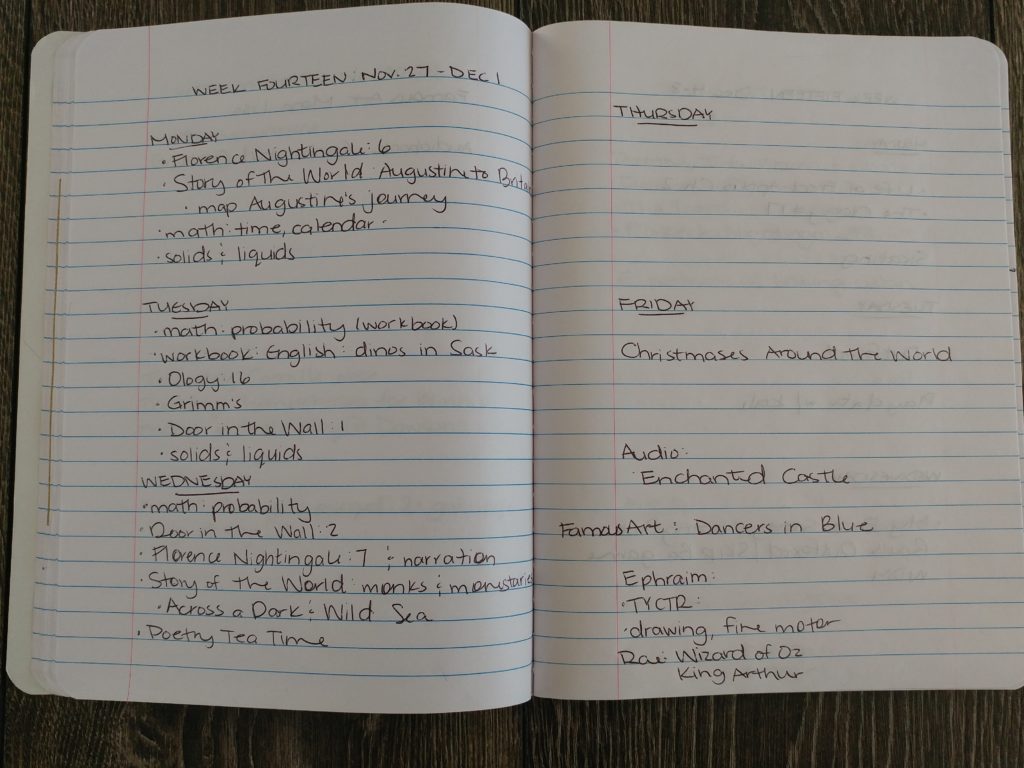 WEEK FOURTEEN: NOV. 27 - DEC 1
MONDAY
· Florence Nightingale: 6
· Story of The World: Augustine to Britain
· map Augustine's journey
· math: time, calendar
· solids & liquids
TUESDAY
· math: probability (workbook)
· workbook: English: dinos in Sask
· Ology: 16
· Grimm's
· Door in the Wall: 1
· solids & liquids
WEDNESDAY
· math: probability
· Door in the Wall: 2
· Florence Nightingale: 7 & narration
· Story of the World: monks & monastaries
· Across a Dark & Wild Sea
· Poetry Tea Time
THURSDAY
FRIDAY
Christmases Around the World
Audio:
· Enchanted Castle
Famous Art: Dancers in Blue
Ephraim:
· TYCTR:
· drawing, fine motor
Rae: Wizard of Oz
King Arthur